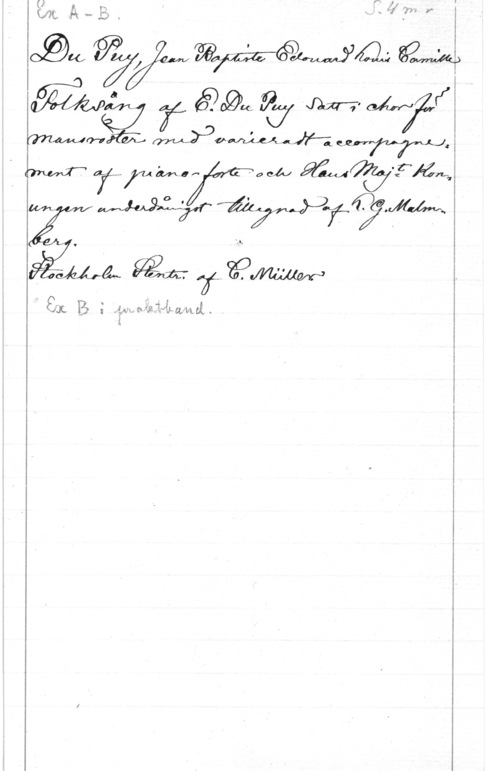 Ex A-B. S. 4 m r
Du Puy, Jean Baptiste Edouard Louis Camille
Folksång af E. Du Puy Satt i chor för
mansröster med varieradt accompagne-
ment af piano-forte och Hans Maj:t Kon-
ungen underdånigst tillegnad af P. G. Malm-
berg.
Stockholm Stentr. af C. Müller
Ex B i praktband.